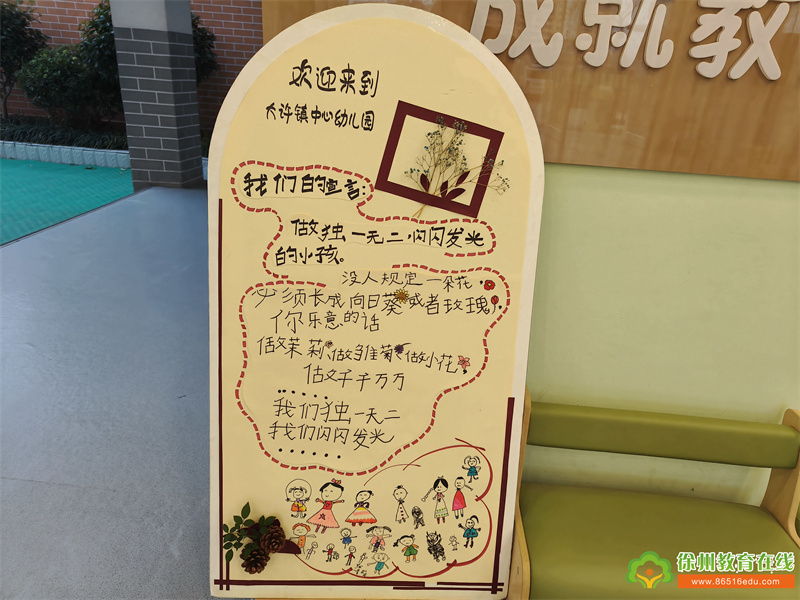 成就教
欢迎来到
大许镇中心幼儿园
我们的宣言:
做独一无二,闪闪发光
的小孩。
没人规定一朵花
必须长成向日葵或者玫瑰
你乐意的话
做茉莉做雏菊做小花
做千千万万
......
我们独一无二
我们闪闪发光
......
徐州教育在线
www.86516edu.com